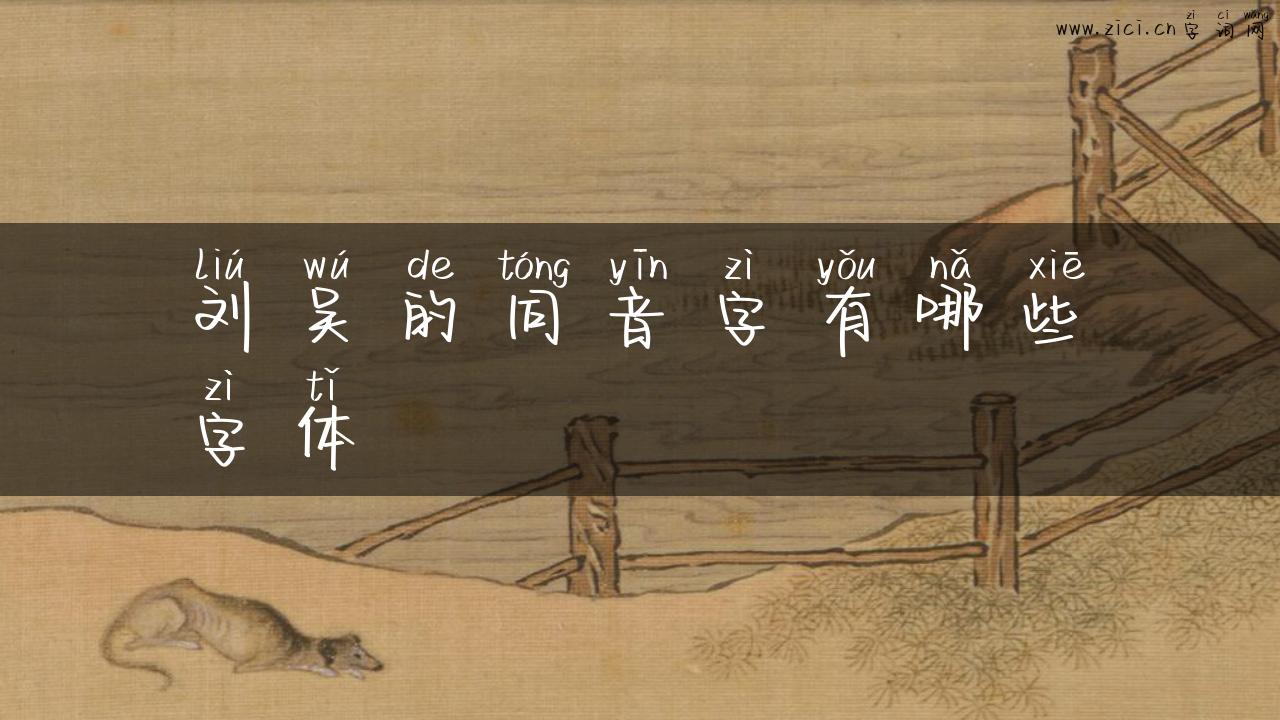 zì cí wǎng
www.zici.cn 字词网
liú wú de tóng yīn zì yǒu nǎ xiē
刘吴的同音字有哪些
zì tǐ
字体